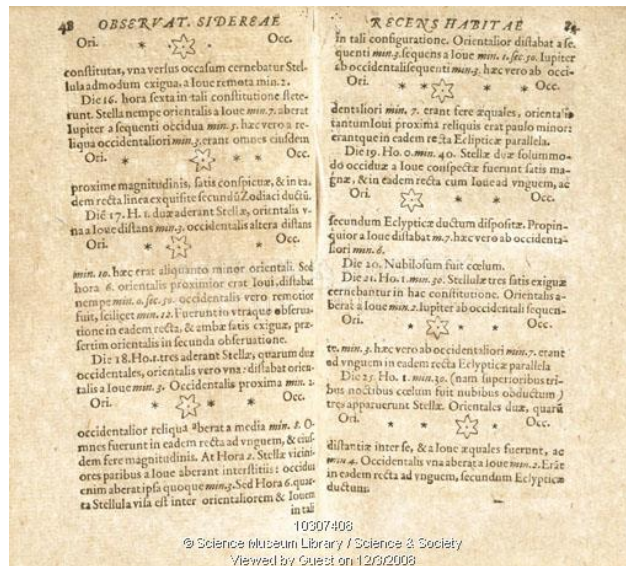 48 OBSERVAT. SIDEREAE
Ori. * * Occ.
constitutas, vna versus occasum cernebatur Stel-
lula admodum exigua, a Ioue remota min. 2.
Die 16. hora sexta in tali constitutione stete-
runt. Stella nempe orientalis a Ioue min. 7. aberat
Iupiter a sequenti occidua min. 5. hæc vero a re-
liqua occidentaliori min. 3. erant omnes eiusdem
Ori. * * * Occ.
proxime magnitudinis, satis conspicuæ, & in ea-
dem recta linea exquisite secundũ Zodiaci ductũ.
Die 17. H. 1. duæ aderant Stellæ, orientalis v-
na a Ioue distans min. 3. occidentalis altera distans
Ori. * * Occ.
min. 10. hæc erat aliquanto minor orientali. Sed
hora 6. orientalis proximior erat Ioui, distabat
nempe min. 0. sec. 50. occidentalis vero remotior
fuit, scilicet min. 12. Fuerunt in vtraque obserua-
tione in eadem recta, & ambæ satis exiguæ, præ-
sertim orientalis in secunda obseruatione.
Die 18. Ho. 1. tres aderant Stellæ, quarum duæ
occidentales, orientalis vero vna: distabat orien-
talis a Ioue min. 3. Occidentalis proxima min. 2.
Ori. * * * Occ.
occidentalior reliqua aberat a media min. 8. O-
mnes fuerunt in eadem recta ad vnguem, & eius-
dem fere magnitudinis. At Hora 2. Stellæ vicini-
ores paribus a Ioue aberant interstitiis: occidua
enim aberat ipsa quoque min. 3. Sed Hora 6. quar-
ta Stellula visa est inter orientaliorem & Iouem
in tali
RECENS HABITAE
in tali configuratione. Orientalior distabat a se-
quenti min. 3. sequens a Ioue min. 1. sec. 50. Iupiter
ab occidentali sequenti min. 3. hæc vero ab occi-
Ori. * * * * Occ.
dentaliori min. 7. erant fere æquales, orientalis
tantum Ioui proxima reliquis erat paulo minor:
erantque in eadem recta Eclipticæ parallela.
Die 19. Ho. 0. min. 40. Stellæ duæ solummo-
do occiduæ a Ioue conspectæ fuerunt satis ma-
gnæ, & in eadem recta cum Ioue ad vnguem, ac
Ori. * * Occ.
secundum Eclypticæ ductum dispositæ. Propin-
quior a Ioue distabat m. 7. hæc vero ab occidenta-
liori min. 6.
Die 20. Nubilosum fuit cœlum.
Die 21. Ho. 1. min. 30. Stellulæ tres satis exiguæ
cernebantur in hac constitutione. Orientalis a-
berat a Ioue min. 2. Iupiter ab occidentali sequen-
Ori. * * * Occ.
te. min. 3. hæc vero ab occidentaliori min. 7. erant
ad vnguem in eadem recta Eclypticæ parallela
Die 25. Ho. 1. min. 30. (nam superioribus tri-
bus noctibus cœlum fuit nubibus obductum)
tres apparuerunt Stellæ. Orientales duæ, quarũ
Ori. * * * Occ.
distantiæ inter se, & a Ioue æquales fuerunt, ac
min 4. Occidentalis vna aberat a Ioue min. 2. Erãt
in eadem recta ad vnguem, secundum Eclypticæ
ductum.
10307408
© Science Museum Library / Science & Society
Viewed by Guest on 12/3/2008